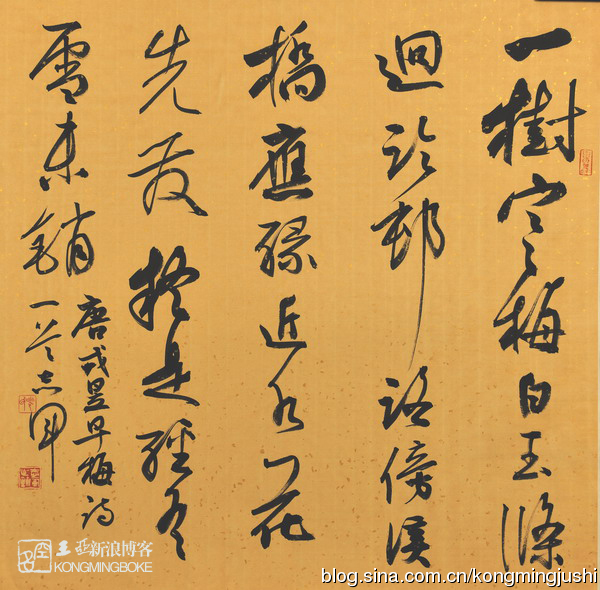 一樹寒梅白玉條
迴臨邨路傍溪
橋應緣近水花
先發疑是經冬
雪未銷
唐戎昱早梅詩
新浪博客
KONGMINGBOKE
blog.sina.com.cn/kongmingjushi